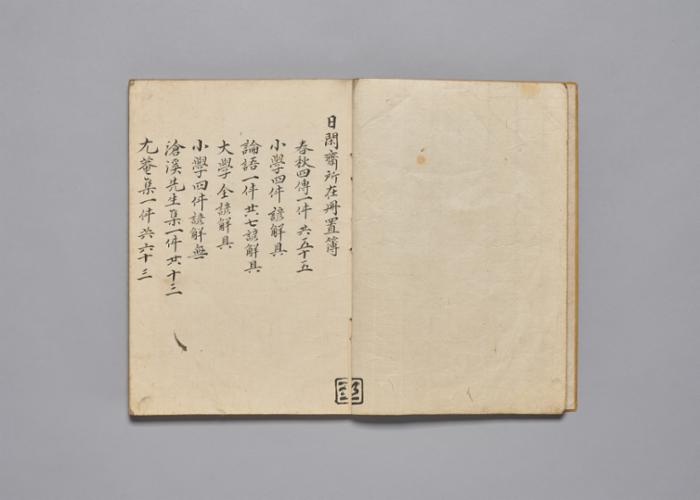 日閑齋所在冊置簿
春秋四傳一件 共五十五
小學四件 諺解具
論語一件 共七諺解具
大學仝諺解具
小學四件諺解無
滄溪先生集一件 共十三
尤菴集一件 共六十三